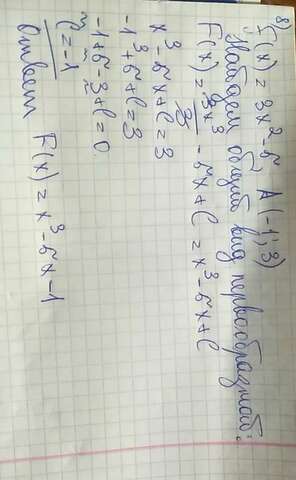 8) f(x) = 3x² - 5 A (-1; 3)
Найдем общий вид первообразной:
F(x) = 3x³/3 - 5x + C = x³ - 5x + C
x³ - 5x + C = 3
-1³ + 5 + C = 3
-1 + 5 - 3 + C = 0
C = -1
Ответ F(x) = x³ - 5x - 1